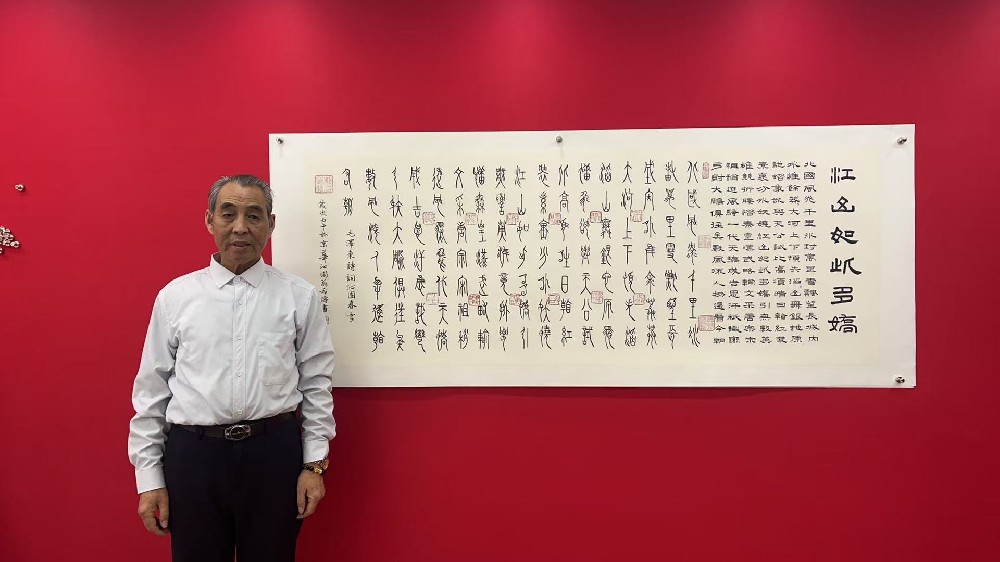 江山如此多嬌
北國風光千里冰封萬里雪飄望長城內
外惟餘莽莽大河上下頓失滔滔山舞銀蛇原
馳蠟象欲與天公試比高須晴日看紅裝
素裹分外妖嬈江山如此多嬌引無數英
雄競折腰惜秦皇漢武略輸文采唐宗宋
祖稍遜風騷一代天驕成吉思汗祇識彎
弓射大雕俱往矣數風流人物還看今朝
北國風光千里冰
封萬里雪飄望長
城內外惟餘莽莽
大河上下頓失滔
滔山舞銀蛇原馳
蠟象欲與天公試
比高須晴日看紅
裝素裹分外妖嬈
江山如此多嬌引
無數英雄競折腰
惜秦皇漢武略輸
文采唐宗宋祖稍
遜風騷一代天驕
成吉思汗祇識彎
弓射大雕俱往矣
數風流人物還看
今朝
毛澤東詩詞沁園春雪